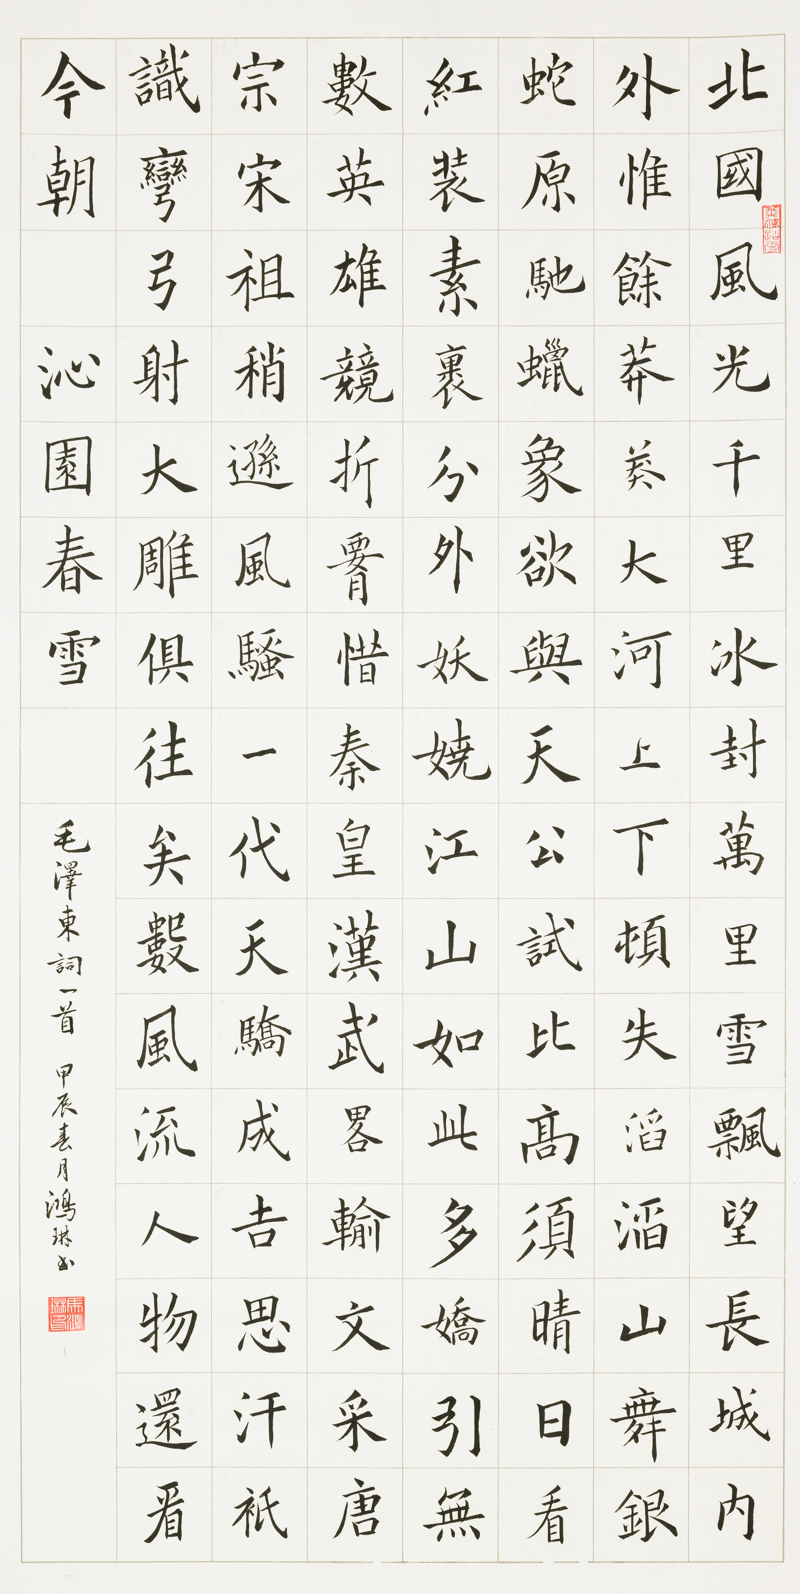 北國風光千里冰封萬里雪飄望長城內
外惟餘莽莽大河上下頓失滔滔山舞銀
蛇原馳蠟象欲與天公試比高須晴日看
紅裝素裹分外妖嬈江山如此多嬌引無
數英雄競折腰惜秦皇漢武畧輸文采唐
宗宋祖稍遜風騷一代天驕成吉思汗祇
識彎弓射大雕俱往矣數風流人物還看
今朝 沁園春雪
毛澤東詞一首 甲辰春月鴻琳书